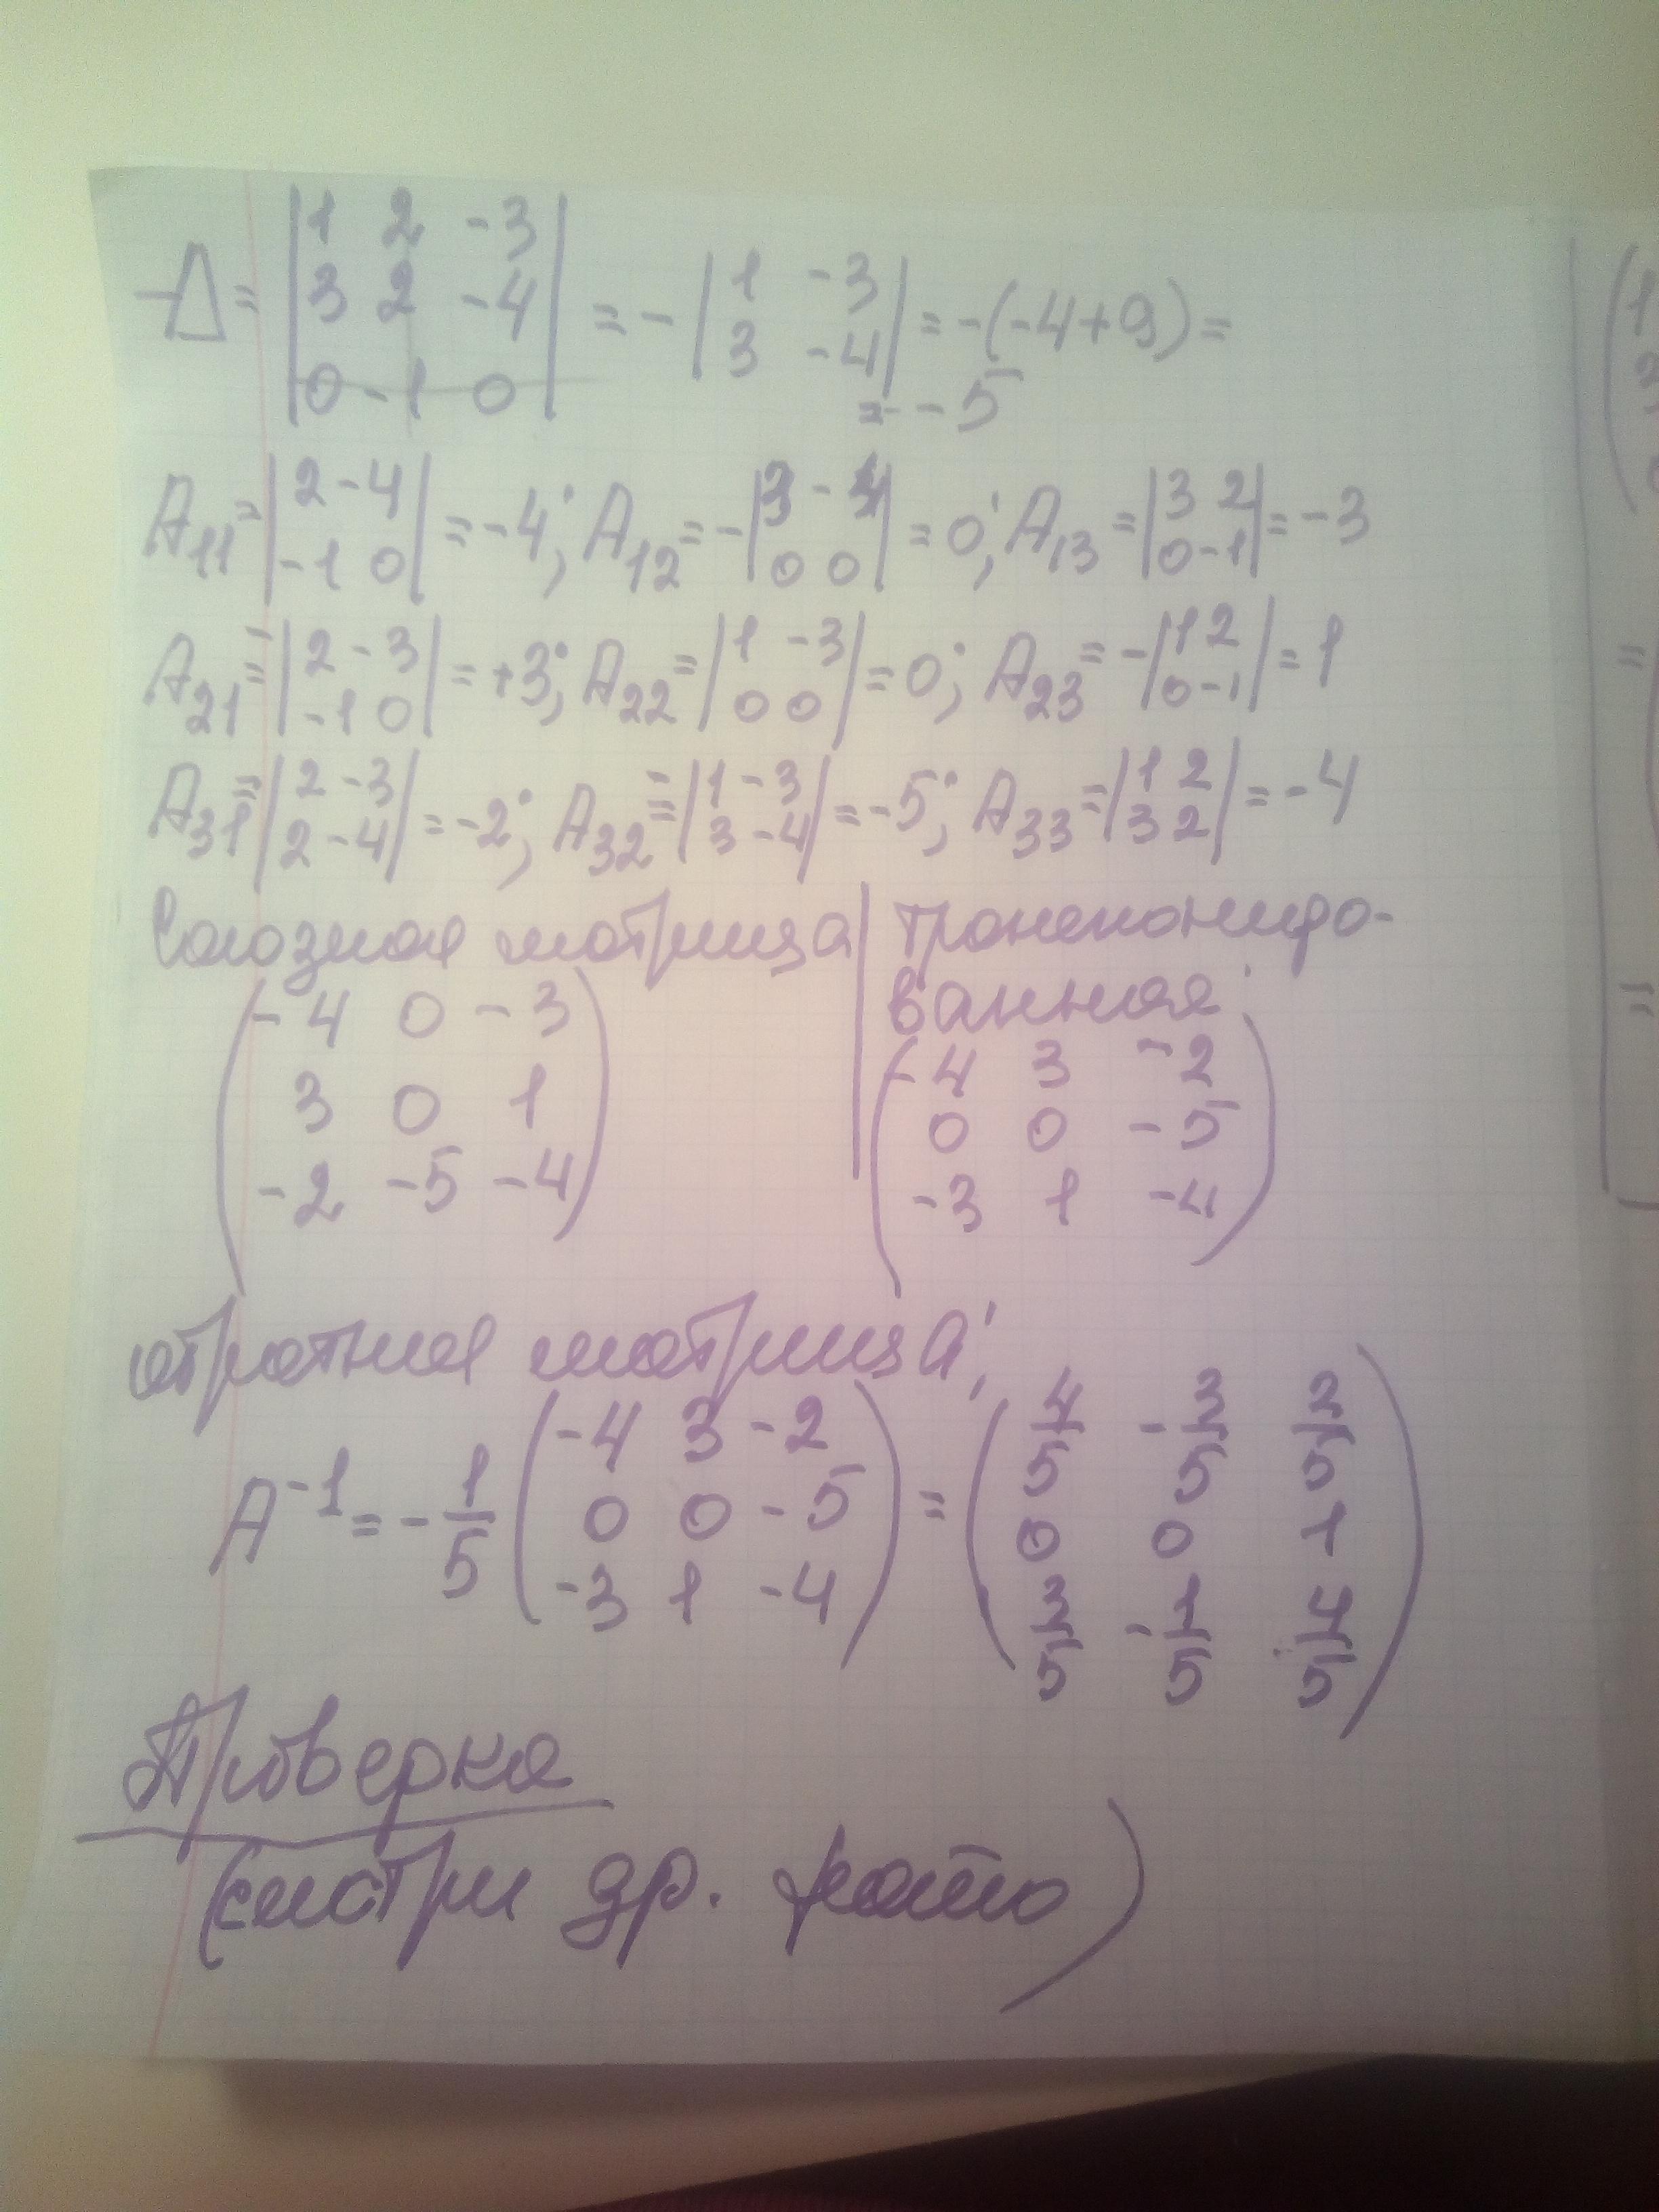 -Δ= |1 2 -3
3 2 -4
0 -1 0| = -|1 -3
3 -4| = -(-4+9) =
= -5
A11 = |2 -4
-1 0| = -4; A12 = -|3 -4
0 0| = 0; A13 = |3 2
0 -1| = -3
A21 = -|2 -3
-1 0| = +3; A22 = |1 -3
0 0| = 0; A23 = -|1 2
0 -1| = 1
A31 = |2 -3
2 -4| = -2; A32 = -|1 -3
3 -4| = -5; A33 = |1 2
3 2| = -4
Союзная матрица | транспониро-
ванная:
(-4 0 -3
3 0 1
-2 -5 -4)
(-4 3 -2
0 0 -5
-3 1 -4)
обратная матрица:
A^-1 = -1/5 (-4 3 -2
0 0 -5
-3 1 -4) = (4/5 -3/5 2/5
0 0 1
3/5 -1/5 4/5)
Проверка
(смотри др. фото)